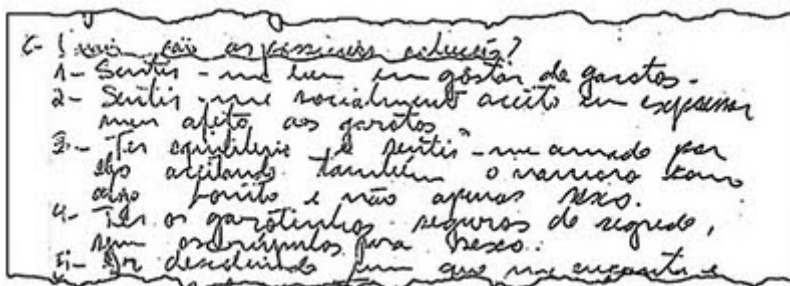 são as possíveis soluções?
1- Sentir-me bem em gostar de garotos.
2- Sentir-me socialmente aceito em expressar
meu afeto aos garotos
3- Ter equilíbrio e sentir-me amado por
aceitando também o namoro como
algo bonito e não apenas sexo.
4- Ter os garotinhos seguros do segredo,
sem escrúpulos para sexo.
5- Ir descobrindo que me